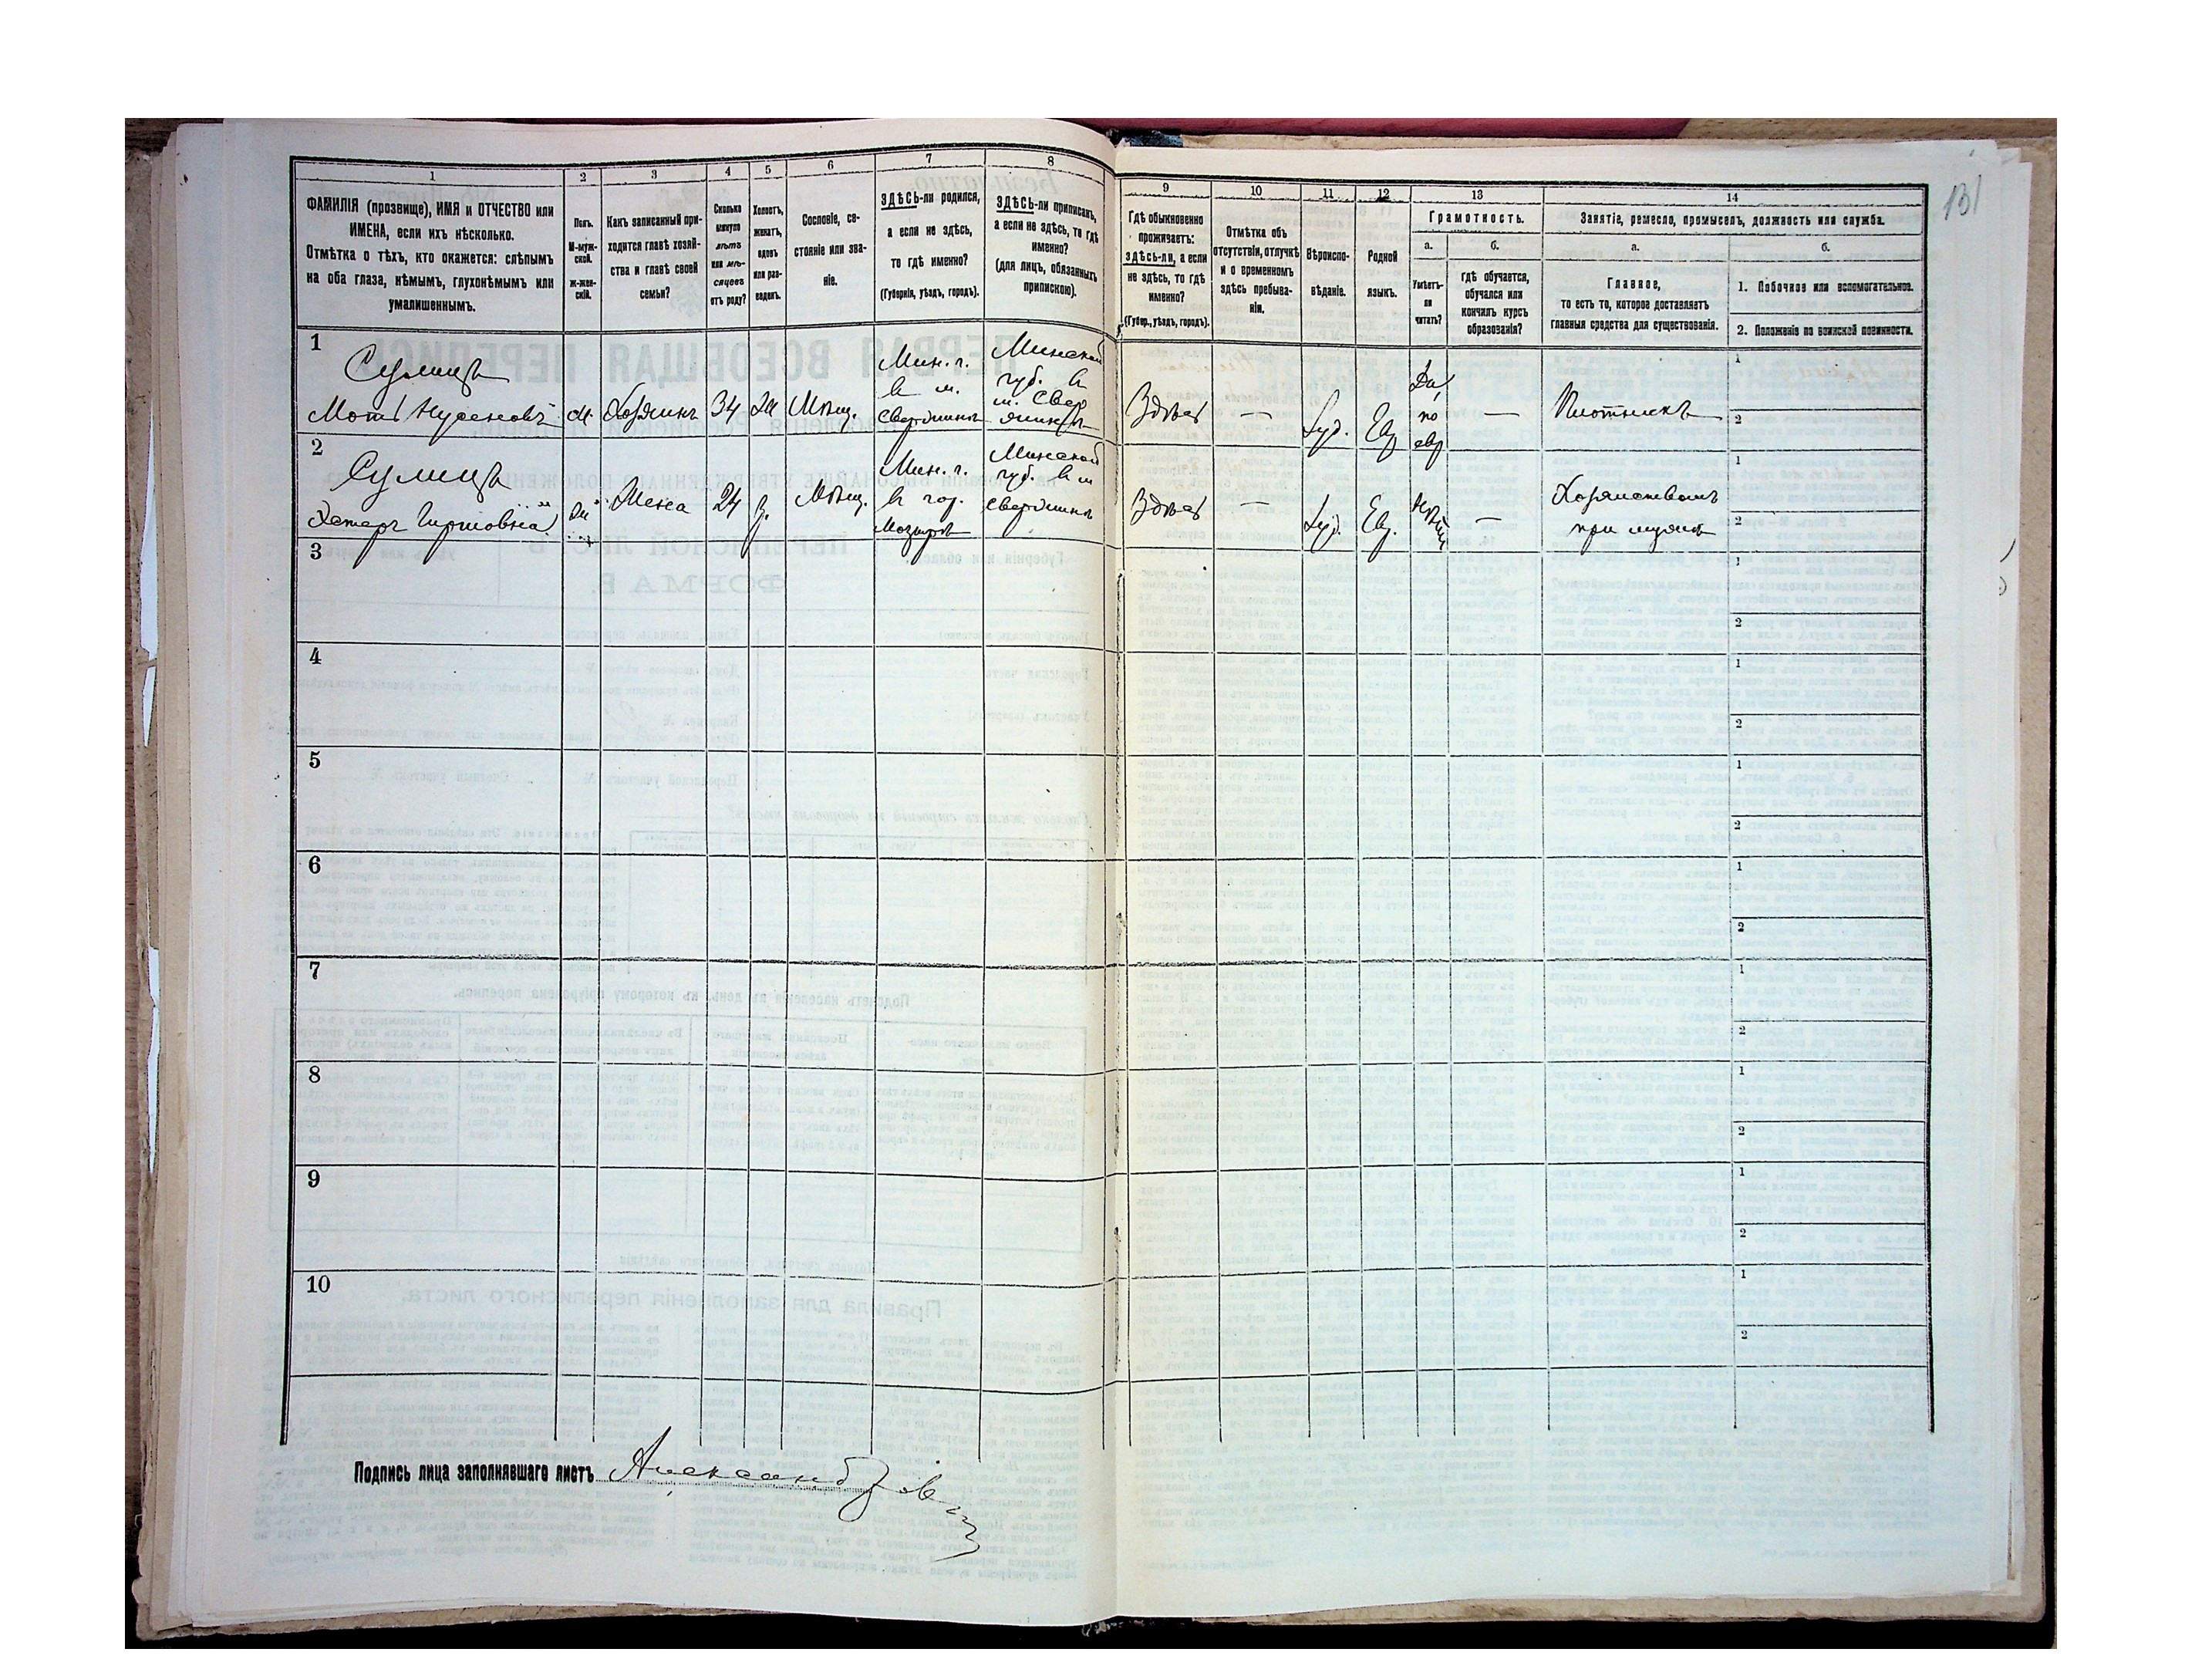 131
1
2
3
4
5
6
7
8
ФАМИЛІЯ (прозвище), ИМЯ и ОТЧЕСТВО или
ИМЕНА, если ихъ нѣсколько.
Отмѣтка о тѣхъ, кто окажется: слѣпымъ
на оба глаза, нѣмымъ, глухонѣмымъ или
умалишеннымъ.
Полъ.
М-муж-
ской.
Ж-жен-
скій.
Какъ записанный при-
ходится главѣ хозяй-
ства и главѣ своей
семьи?
Сколько
минуло
лѣтъ
или мѣ-
сяцевъ
отъ роду?
Холостъ,
женатъ,
вдовъ
или раз-
веденъ.
Сословіе, со-
стояніе или зва-
ніе.
ЗДѢСЬ-ли родился,
а если не здѣсь,
то гдѣ именно?
(Губернія, уѣздъ, городъ).
ЗДѢСЬ-ли приписанъ,
а если не здѣсь, то гдѣ
именно?
(для лицъ, обязанныхъ
припискою).
9
10
11
12
13
14
Гдѣ обыкновенно
проживаетъ:
здѣсь-ли, а если
не здѣсь, то гдѣ
именно?
(Губер., уѣздъ, городъ).
Отмѣтка объ
отсутствіи, отлучкѣ
и о временномъ
здѣсь пребыва-
ніи.
Вѣроиспо-
вѣданіе.
Родной
языкъ.
Грамотность.
а.
б.
Умѣетъ-
ли
читать?
гдѣ обучается,
обучался или
кончилъ курсъ
образованія?
Занятіе, ремесло, промыселъ, должность или служба.
а.
б.
Главное,
то есть то, которое доставляетъ
главныя средства для существованія.
1. Побочное или вспомогательное.
2. Положеніе по воинской повинности.
1
м.
Хозяинъ
34
Мѣщ.
Мин. г.
в м.
Минской
губ. в
Здѣсь
—
Іуд.
Евр
Да,
по
евр
—
Плотникъ
1
2
2
Жена
24
З.
Мѣщ.
Мин. г.
в гор.
Мозырѣ
Минской
губ. в м
Здѣсь
—
Іуд.
Ев.
—
Хозяйствомъ
при мужѣ
1
2
3
1
2
4
1
2
5
1
2
6
1
2
7
1
2
8
1
2
9
1
2
10
1
2
Подпись лица заполнявшаго листъ